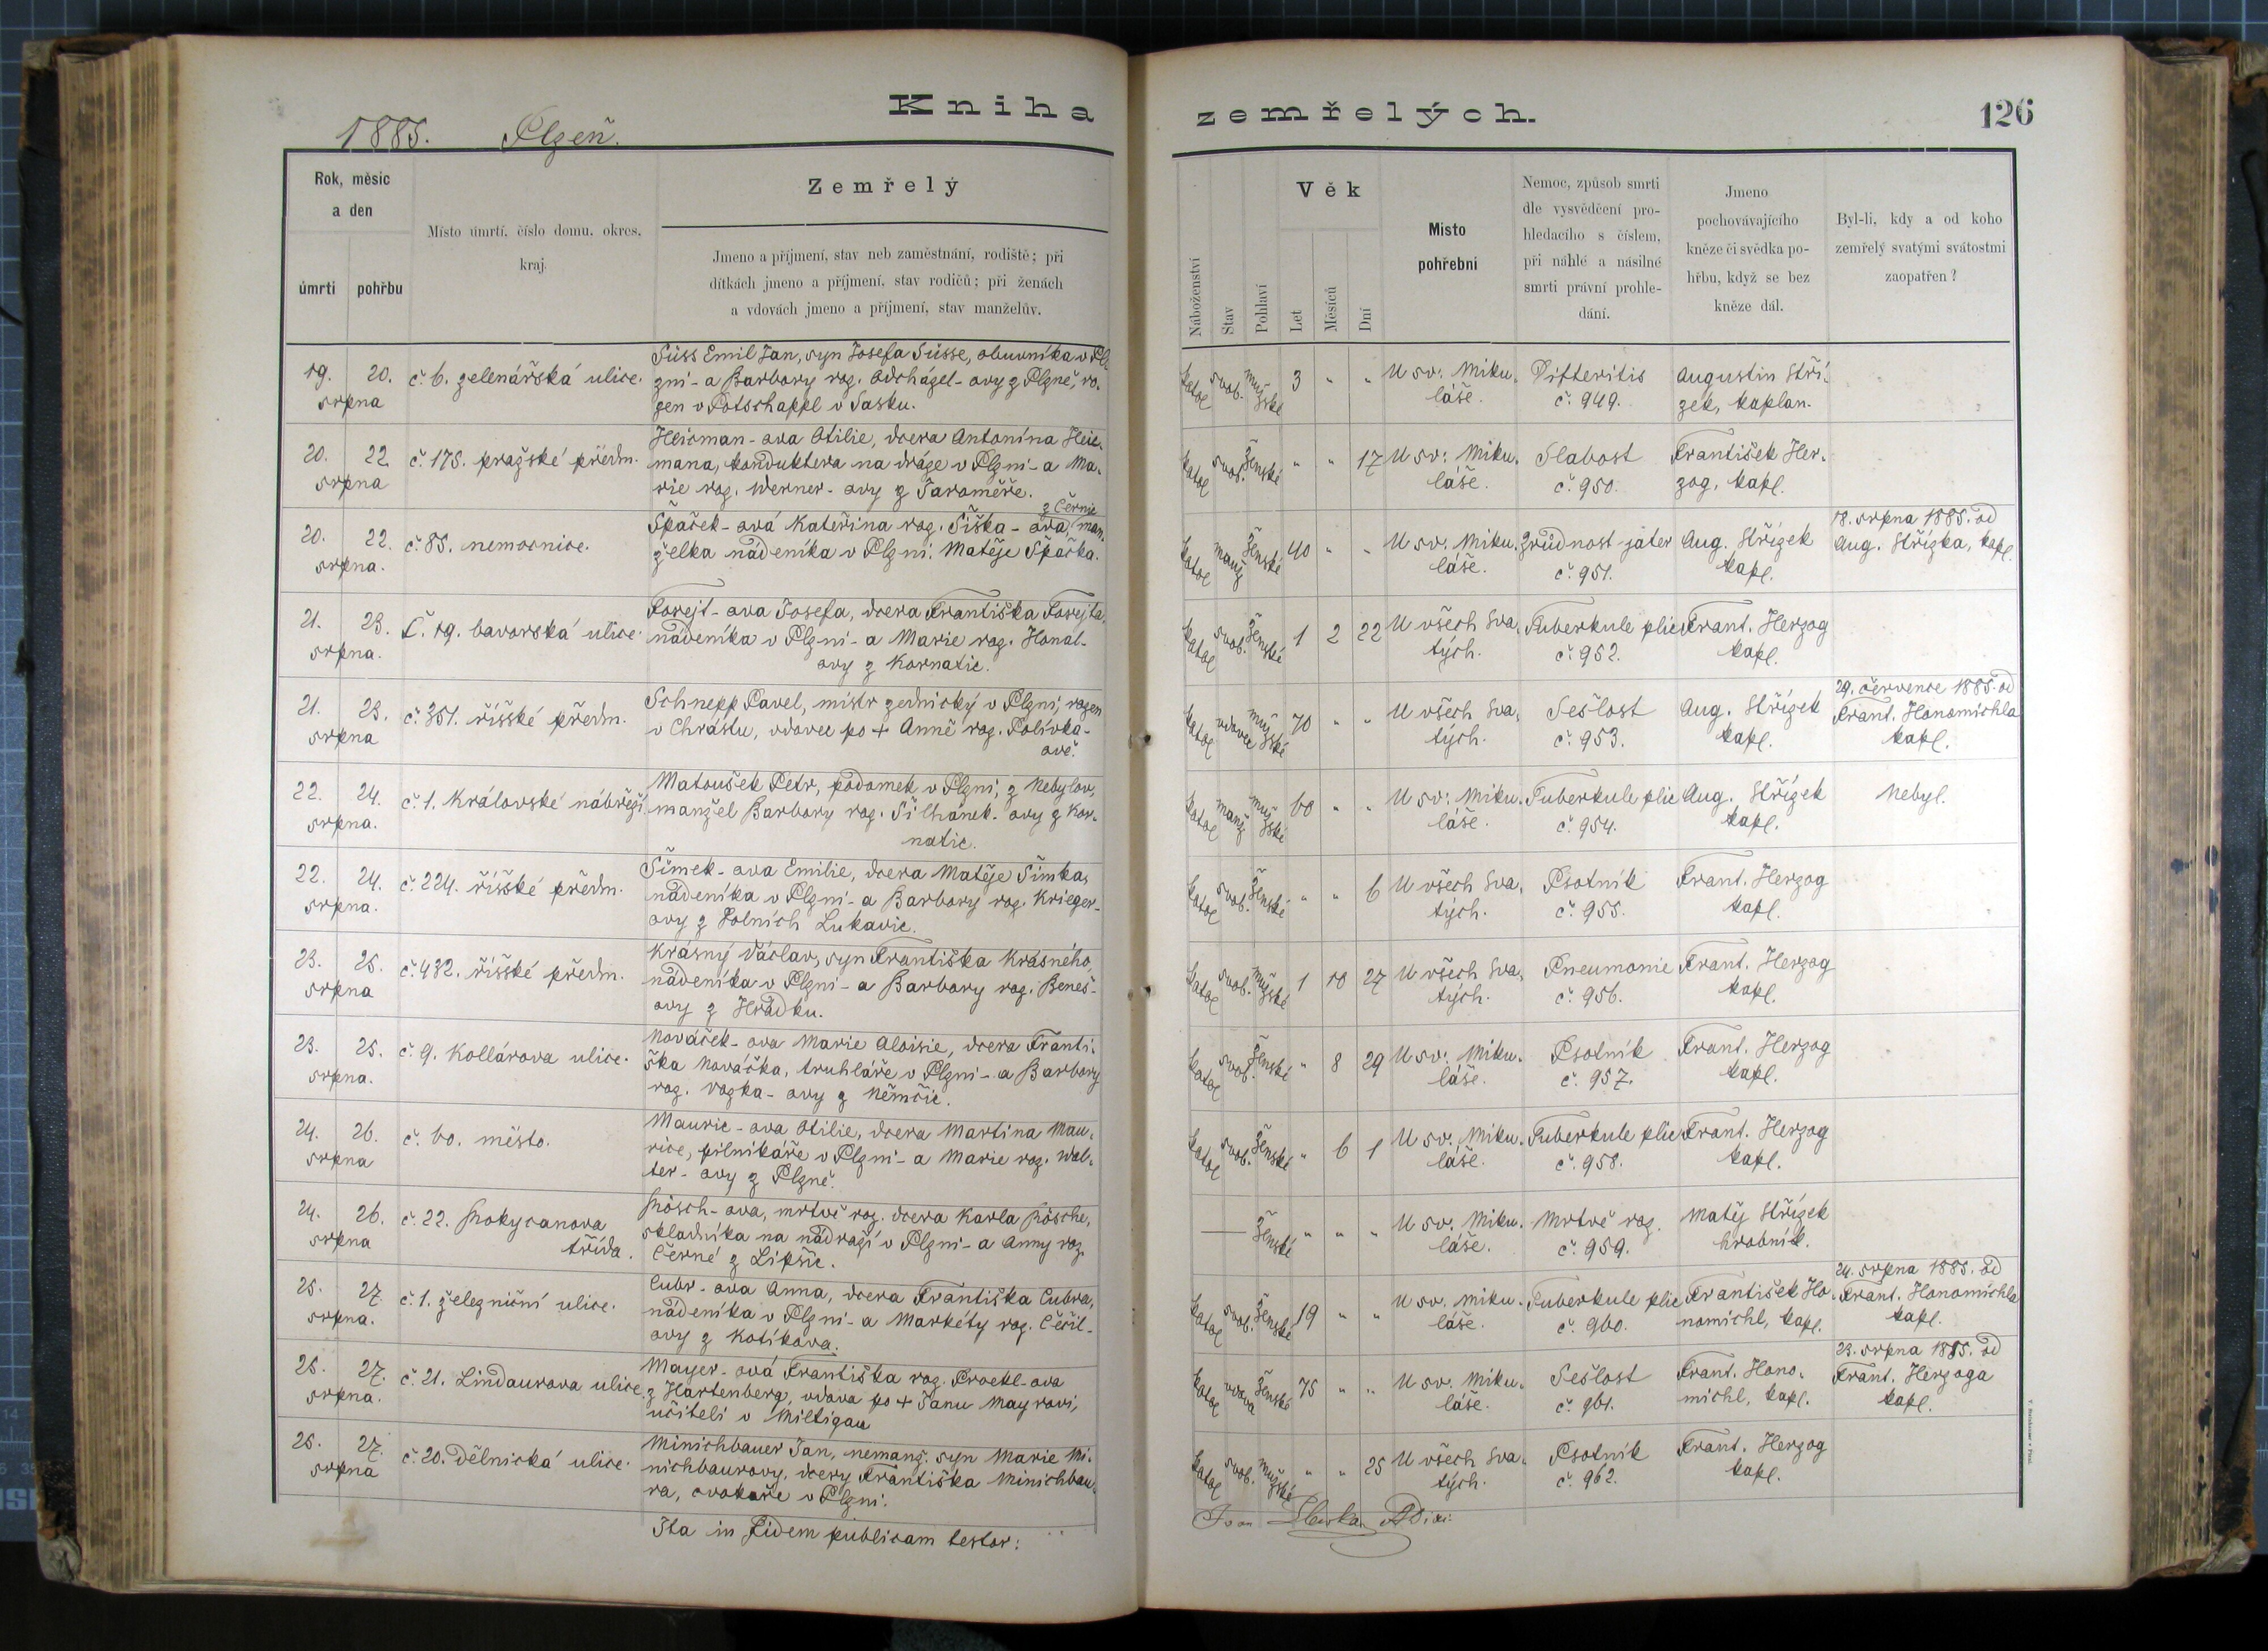 Kniha
1885. Plzeň.
Rok, měsíc
a den
úmrtí
pohřbu
Místo úmrtí, číslo domu, okres,
kraj.
Zemřelý
Jmeno a příjmení, stav neb zaměstnání, rodiště; při
dítkách jmeno a příjmení, stav rodičů; při ženách
a vdovách jmeno a příjmení, stav manželův.
zemřelých.
126
Náboženství
Stav
Pohlaví
Věk
Let
Měsíců
Dní
Místo
pohřební
Nemoc, způsob smrti
dle vysvědčení pro-
hledacího s číslem,
při náhlé a násilné
smrti právní prohle-
dání.
Jmeno
pochovávajícího
kněze či svědka po-
hřbu, když se bez
kněze dál.
Byl-li, kdy a od koho
zemřelý svatými svátostmi
zaopatřen?
19. 20.
srpna
č. 6. zelenářská ulice.
Süss Emil Jan, syn Josefa Süsse, obuvníka v Pl-
zni - a Barbory roz. Odcházel-ovy z Plzně, ro-
zen v Potschappl v Sasku.
katol svob. mužské 3 " "
U sv. Miku-
láše.
Difteritis
č. 949.
Augustin Stří-
zek, kaplan.
20. 22.
srpna
č. 175. pražské předm.
Heicman-ova Otilie, dcera Antonína Heic-
mana, konduktera na dráze v Plzni - a Ma-
rie roz. Werner-ovy z Jaroměře.
katol svob. ženské " " 17
U sv. Miku-
láše.
Slabost
č. 950.
František Her-
zog, kapl.
20. 22.
srpna.
č. 85. nemocnice.
z Černic
Špaček-ová Kateřina roz. Šiška-ova, man-
želka nádeníka v Plzni: Matěje Špačka.
katol manž ženské 40 " "
U sv. Miku-
láše.
Zrůdnost játer
č. 951.
Aug. Střízek
kapl.
18. srpna 1885. od
Aug. Střízka, kapl.
21. 23.
srpna.
č. 19. bavorská ulice.
Forejt-ova Josefa, dcera Františka Forejta,
nádeníka v Plzni - a Marie roz. Honal-
ovy z Kornatic.
katol svob. ženské 1 2 22
U všech Sva-
tých.
Tuberkule plic
č. 952.
Frant. Herzog
kapl.
21. 23.
srpna
č. 351. říšské předm.
Schnepp Pavel, mistr zednický v Plzni, rozen
v Chrástu, vdovec po + Anně roz. Polívka-
ově.
katol vdovec mužské 70 " "
U všech Sva-
tých.
Sešlost
č. 953.
Aug. Střízek
kapl.
29. července 1885. od
Frant. Honomichla
kapl.
22. 24.
srpna.
č. 1. Královské nábřeží.
Matoušek Petr, podomek v Plzni, z Nebylov,
manžel Barbory roz. Šilhánek-ovy z Kor-
natic.
katol manž mužské 60 " "
U sv. Miku-
láše.
Tuberkule plic
č. 954.
Aug. Střízek
kapl.
Nebyl.
22. 24.
srpna.
č. 224. říšské předm.
Šimek-ova Emilie, dcera Matěje Šimka,
nádeníka v Plzni - a Barbory roz. Krieger-
ovy z Dolních Lukavic.
katol svob. ženské " " 6
U všech Sva-
tých.
Psotník
č. 955.
Frant. Herzog
kapl.
23. 25.
srpna
č. 432. říšské předm.
Krásný Václav, syn Františka Krásného,
nádeníka v Plzni - a Barbory roz. Beneš-
ovy z Hrádku.
katol svob. mužské 1 10 27
U všech Sva-
tých.
Pneumonie
č. 956.
Frant. Herzog
kapl.
23. 25.
srpna.
č. 9. Kollárova ulice.
Nováček-ova Marie Aloisie, dcera Franti-
ška Nováčka, truhláře v Plzni - a Barbory
roz. Vozka-ovy z Němčic.
katol svob. ženské " 8 29
U sv. Miku-
láše.
Psotník
č. 957.
Frant. Herzog
kapl.
24. 26.
srpna
č. 60. město.
Mauric-ova Otilie, dcera Martina Mau-
rice, pilníkáře v Plzni - a Marie roz. Wal-
ter-ovy z Plzně.
katol svob. ženské " 6 1
U sv. Miku-
láše.
Tuberkule plic
č. 958.
Frant. Herzog
kapl.
24. 26.
srpna
č. 22. Rokycanova
třída.
Rösch-ova, mrtvě roz. dcera Karla Rösche,
skladníka na nádraží v Plzni - a Anny roz.
Černé z Lipšic.
ženské " " "
U sv. Miku-
láše.
Mrtvě roz.
č. 959.
Matěj Střízek
hrobník.
25. 27.
srpna.
č. 1. železniční ulice.
Cubr-ova Anna, dcera Františka Cubra,
nádeníka v Plzni - a Markéty roz. Čečil-
ovy z Kotíkova.
katol svob. ženské 19 " "
U sv. Miku-
láše.
Tuberkule plic
č. 960.
František Ho-
nomichl, kapl.
24. srpna 1885. od
Frant. Honomichla
kapl.
25. 27.
srpna.
č. 21. Lindaurova ulice.
Mayer-ová Františka roz. Proekl-ova
z Hartenberg, vdova po + Janu Mayrovi,
učiteli v Miltigau
katol vdova ženské 75 " "
U sv. Miku-
láše.
Sešlost
č. 961.
Frant. Hono-
michl, kapl.
23. srpna 1885. od
Frant. Herzoga
kapl.
25. 27.
srpna
č. 20. Dělnická ulice.
Minichbauer Jan, nemanž. syn Marie Mi-
nichbaurovy, dcery Františka Minichbau-
ra, cvokaře v Plzni.
katol svob. mužské " " 25
U všech Sva-
tých.
Psotník
č. 962.
Frant. Herzog
kapl.
Ita in fidem publicam testor: